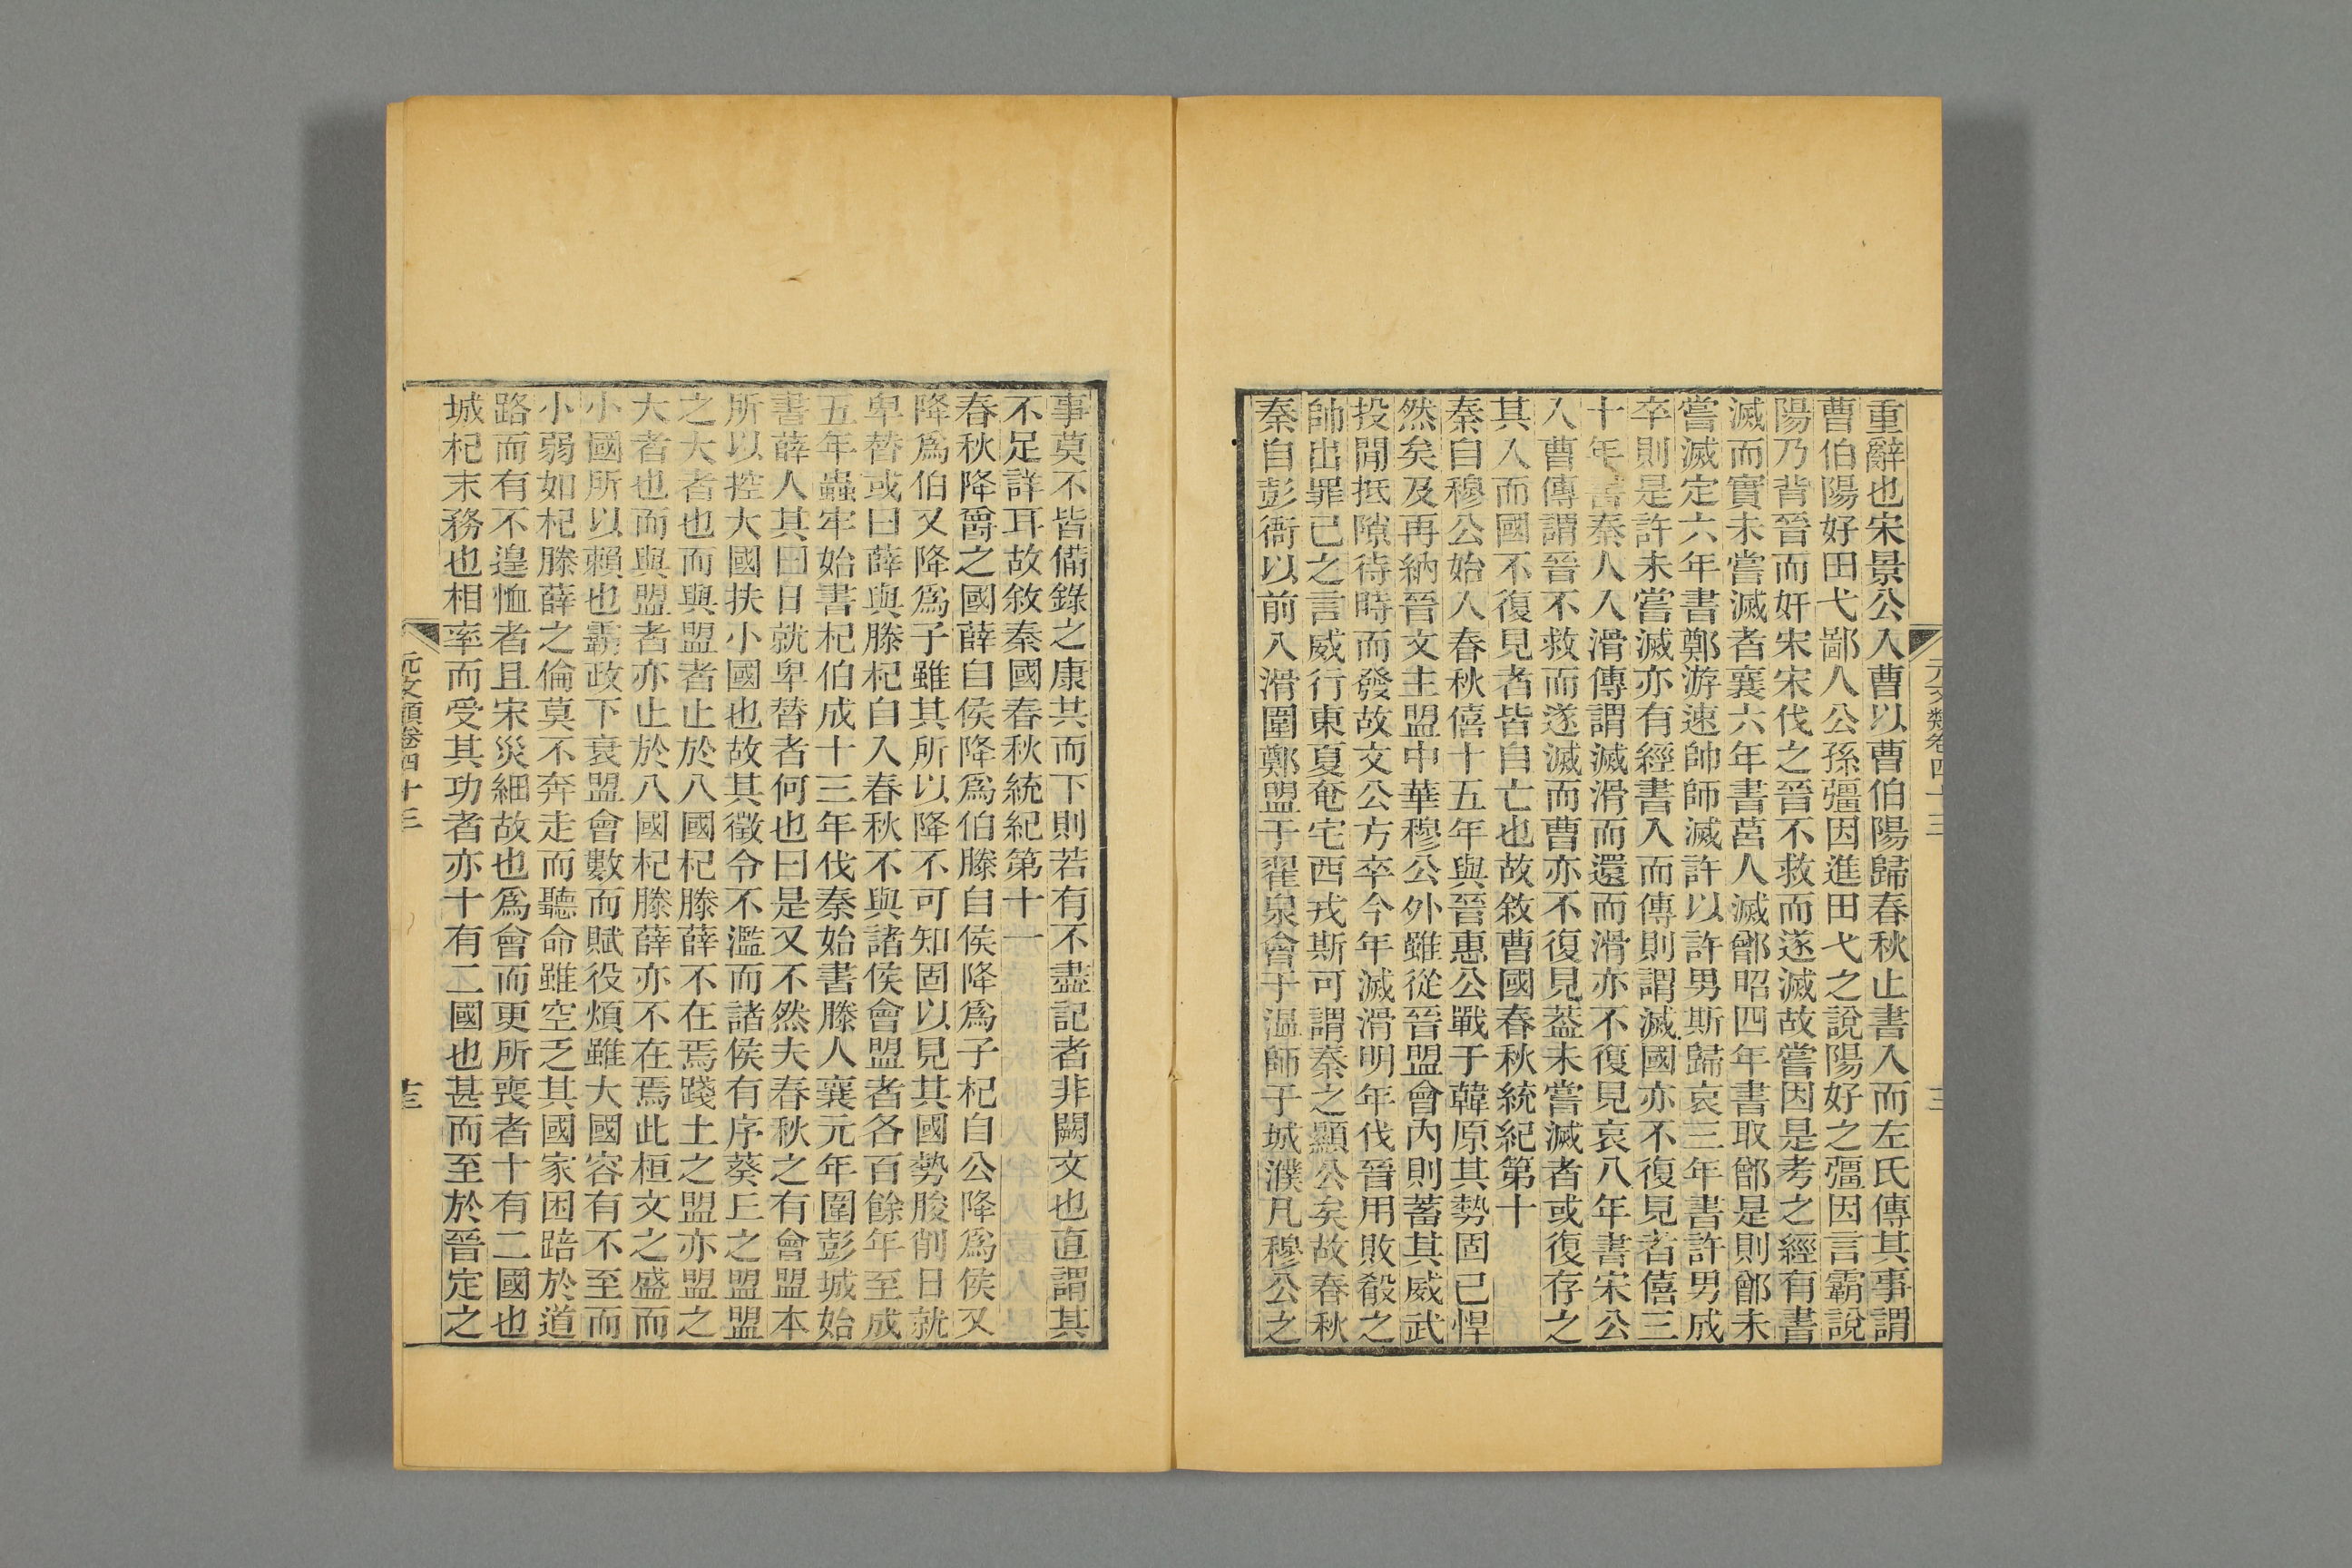 重辭也宋景公入曹以曹伯陽歸春秋止書入而左氏傳其事謂
曹伯陽好田弋鄙人公孫彊因進田弋之說陽好之彊因言霸說
陽乃背晉而奸宋宋伐之晉不救而遂滅故嘗因是考之經有書
滅而實未嘗滅者襄六年書莒人滅鄫昭四年書取鄫是則鄫未
嘗滅定六年書鄭游速帥師滅許以許男斯歸哀三年書許男成
卒則是許未嘗滅亦有經書入而傳則謂滅國亦不復見者僖三
十年書秦人入滑傳謂滅滑而還而滑亦不復見哀八年書宋公
入曹傳謂晉不救而遂滅而曹亦不復見葢未嘗滅者或復存之
其入而國不復見者皆自亡也故敘曹國春秋統紀第十
秦自穆公始入春秋僖十五年與晉惠公戰于韓原其勢固已悍
然矣及再納晉文主盟中華穆公外雖從晉盟會內則蓄其威武
投閒抵隙待時而發故文公方卒今年滅滑明年伐晉用敗殽之
帥出罪己之言威行東夏奄宅西戎斯可謂秦之顯公矣故春秋
秦自彭衙以前入滑圍鄭盟于翟泉會于溫師于城濮凡穆公之
元文類卷四十三
事莫不皆備錄之康共而下則若有不盡記者非闕文也直謂其
不足詳耳故敘秦國春秋統紀第十一
春秋降爵之國薛自侯降爲伯滕自侯降爲子杞自公降爲侯又
降爲伯又降爲子雖其所以降不可知固以見其國勢朘削日就
卑替或曰薛與滕杞自入春秋不與諸侯會盟者各百餘年至成
五年蟲牢始書杞伯成十三年伐秦始書滕人襄元年圍彭城始
書薛人其曰日就卑替者何也曰是又不然夫春秋之有會盟本
所以控大國扶小國也故其徵令不濫而諸侯有序葵丘之盟盟
之大者也而與盟者止於八國杞滕薛不在焉踐土之盟亦盟之
大者也而與盟者亦止於八國杞滕薛亦不在焉此桓文之盛而
小國所以賴也霸政下衰盟會數而賦役煩雖大國容有不至而
小弱如杞滕薛之倫莫不奔走而聽命雖空乏其國家困踣於道
路而有不遑恤者且宋災細故也爲會而更所喪者十有二國也
城杞末務也相率而受其功者亦十有二國也甚而至於晉定之
元文類卷四十三
十三